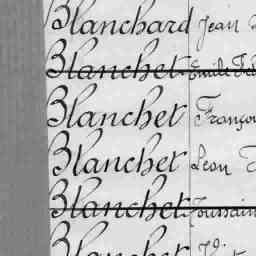 Blanchard Jean
Blanchet Emile
Blanchet Franço
Blanchet Leon
Blanchet Toussain
Blanchet